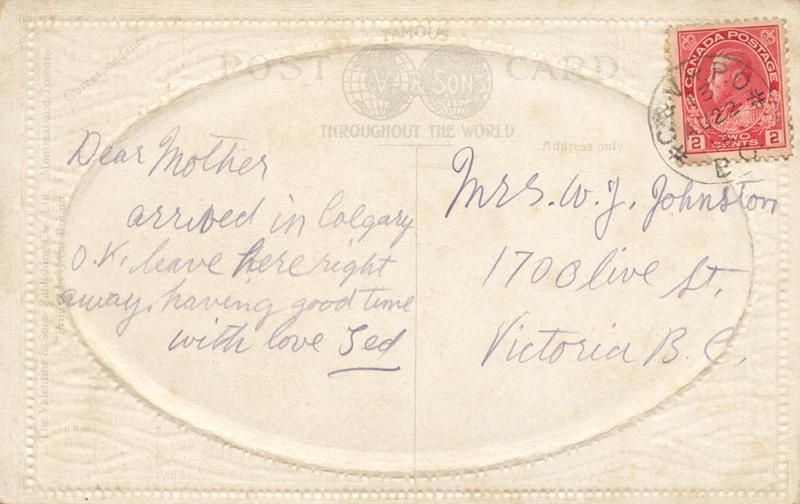 FAMOUS
POST CARD
V. & SONS
THROUGHOUT THE WORLD.
Correspondance
Address only
CANADA POSTAGE
2 TWO CENTS 2
P.O.
22
Dear Mother
arrived in Calgary
O.K. leave here right
away, having good time
with love Ted
Mrs. W. J. Johnston
170 Olive St.
Victoria B.C.
The Valentine & Sons Publishing Co. Ltd., Montreal and Toronto